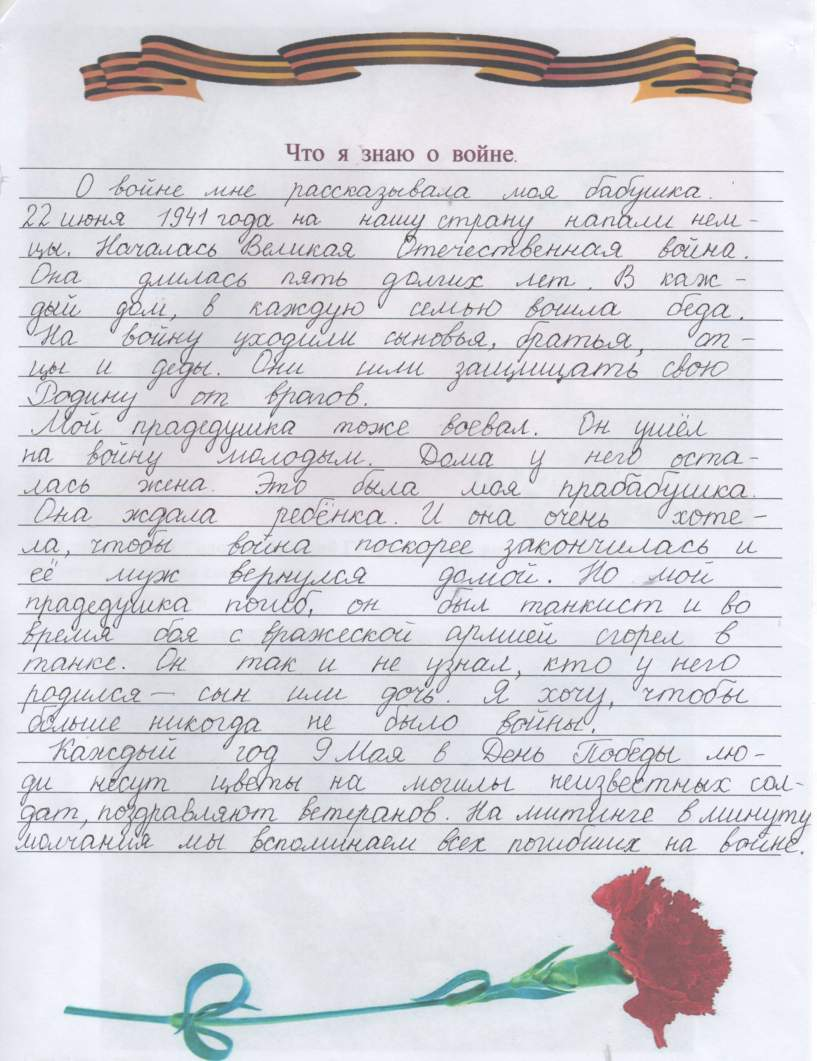 Что я знаю о войне.
О войне мне рассказывала моя бабушка.
22 июня 1941 года на нашу страну напали нем-
цы. Началась Великая Отечественная война.
Она длилась пять долгих лет. В каж-
дый дом, в каждую семью вошла беда.
На войну уходили сыновья, братья, от-
цы и деды. Они шли защищать свою
Родину от врагов.
Мой прадедушка тоже воевал. Он ушёл
на войну молодым. Дома у него оста-
лась жена. Это была моя прабабушка.
Она ждала ребёнка. И она очень хоте-
ла, чтобы война поскорее закончилась и
её муж вернулся домой. Но мой
прадедушка погиб, он был танкист и во
время боя с вражеской армией сгорел в
танке. Он так и не узнал, кто у него
родился — сын или дочь. Я хочу, чтобы
больше никогда не было войны.
Каждый год 9 Мая в День Победы лю-
ди несут цветы на могилы неизвестных сол-
дат, поздравляют ветеранов. На митинге в минуту
молчания мы вспоминаем всех погибших на войне.